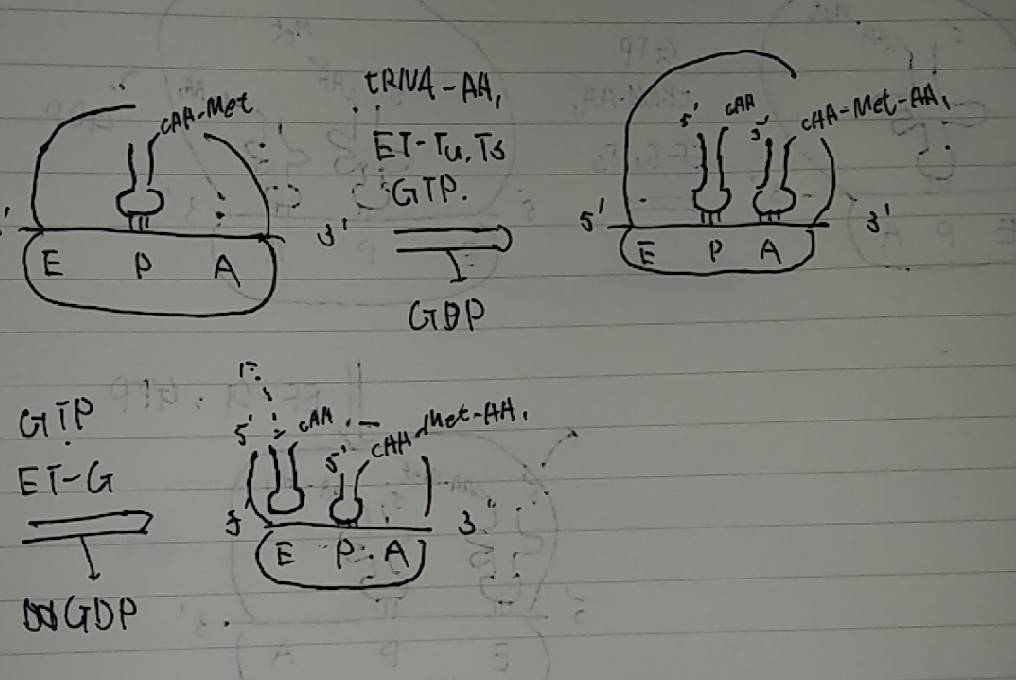 cAA-Met
3'
E P A
tRNA-AA,
ET-Tu, Ts
GTP.
GDP
5' cAA 5' cAA-Met-AA,
5' 3'
E P A
GTP
ET-G
GDP
5' cAA 5' cAA-Met-AA,
5' 3'
E P. A